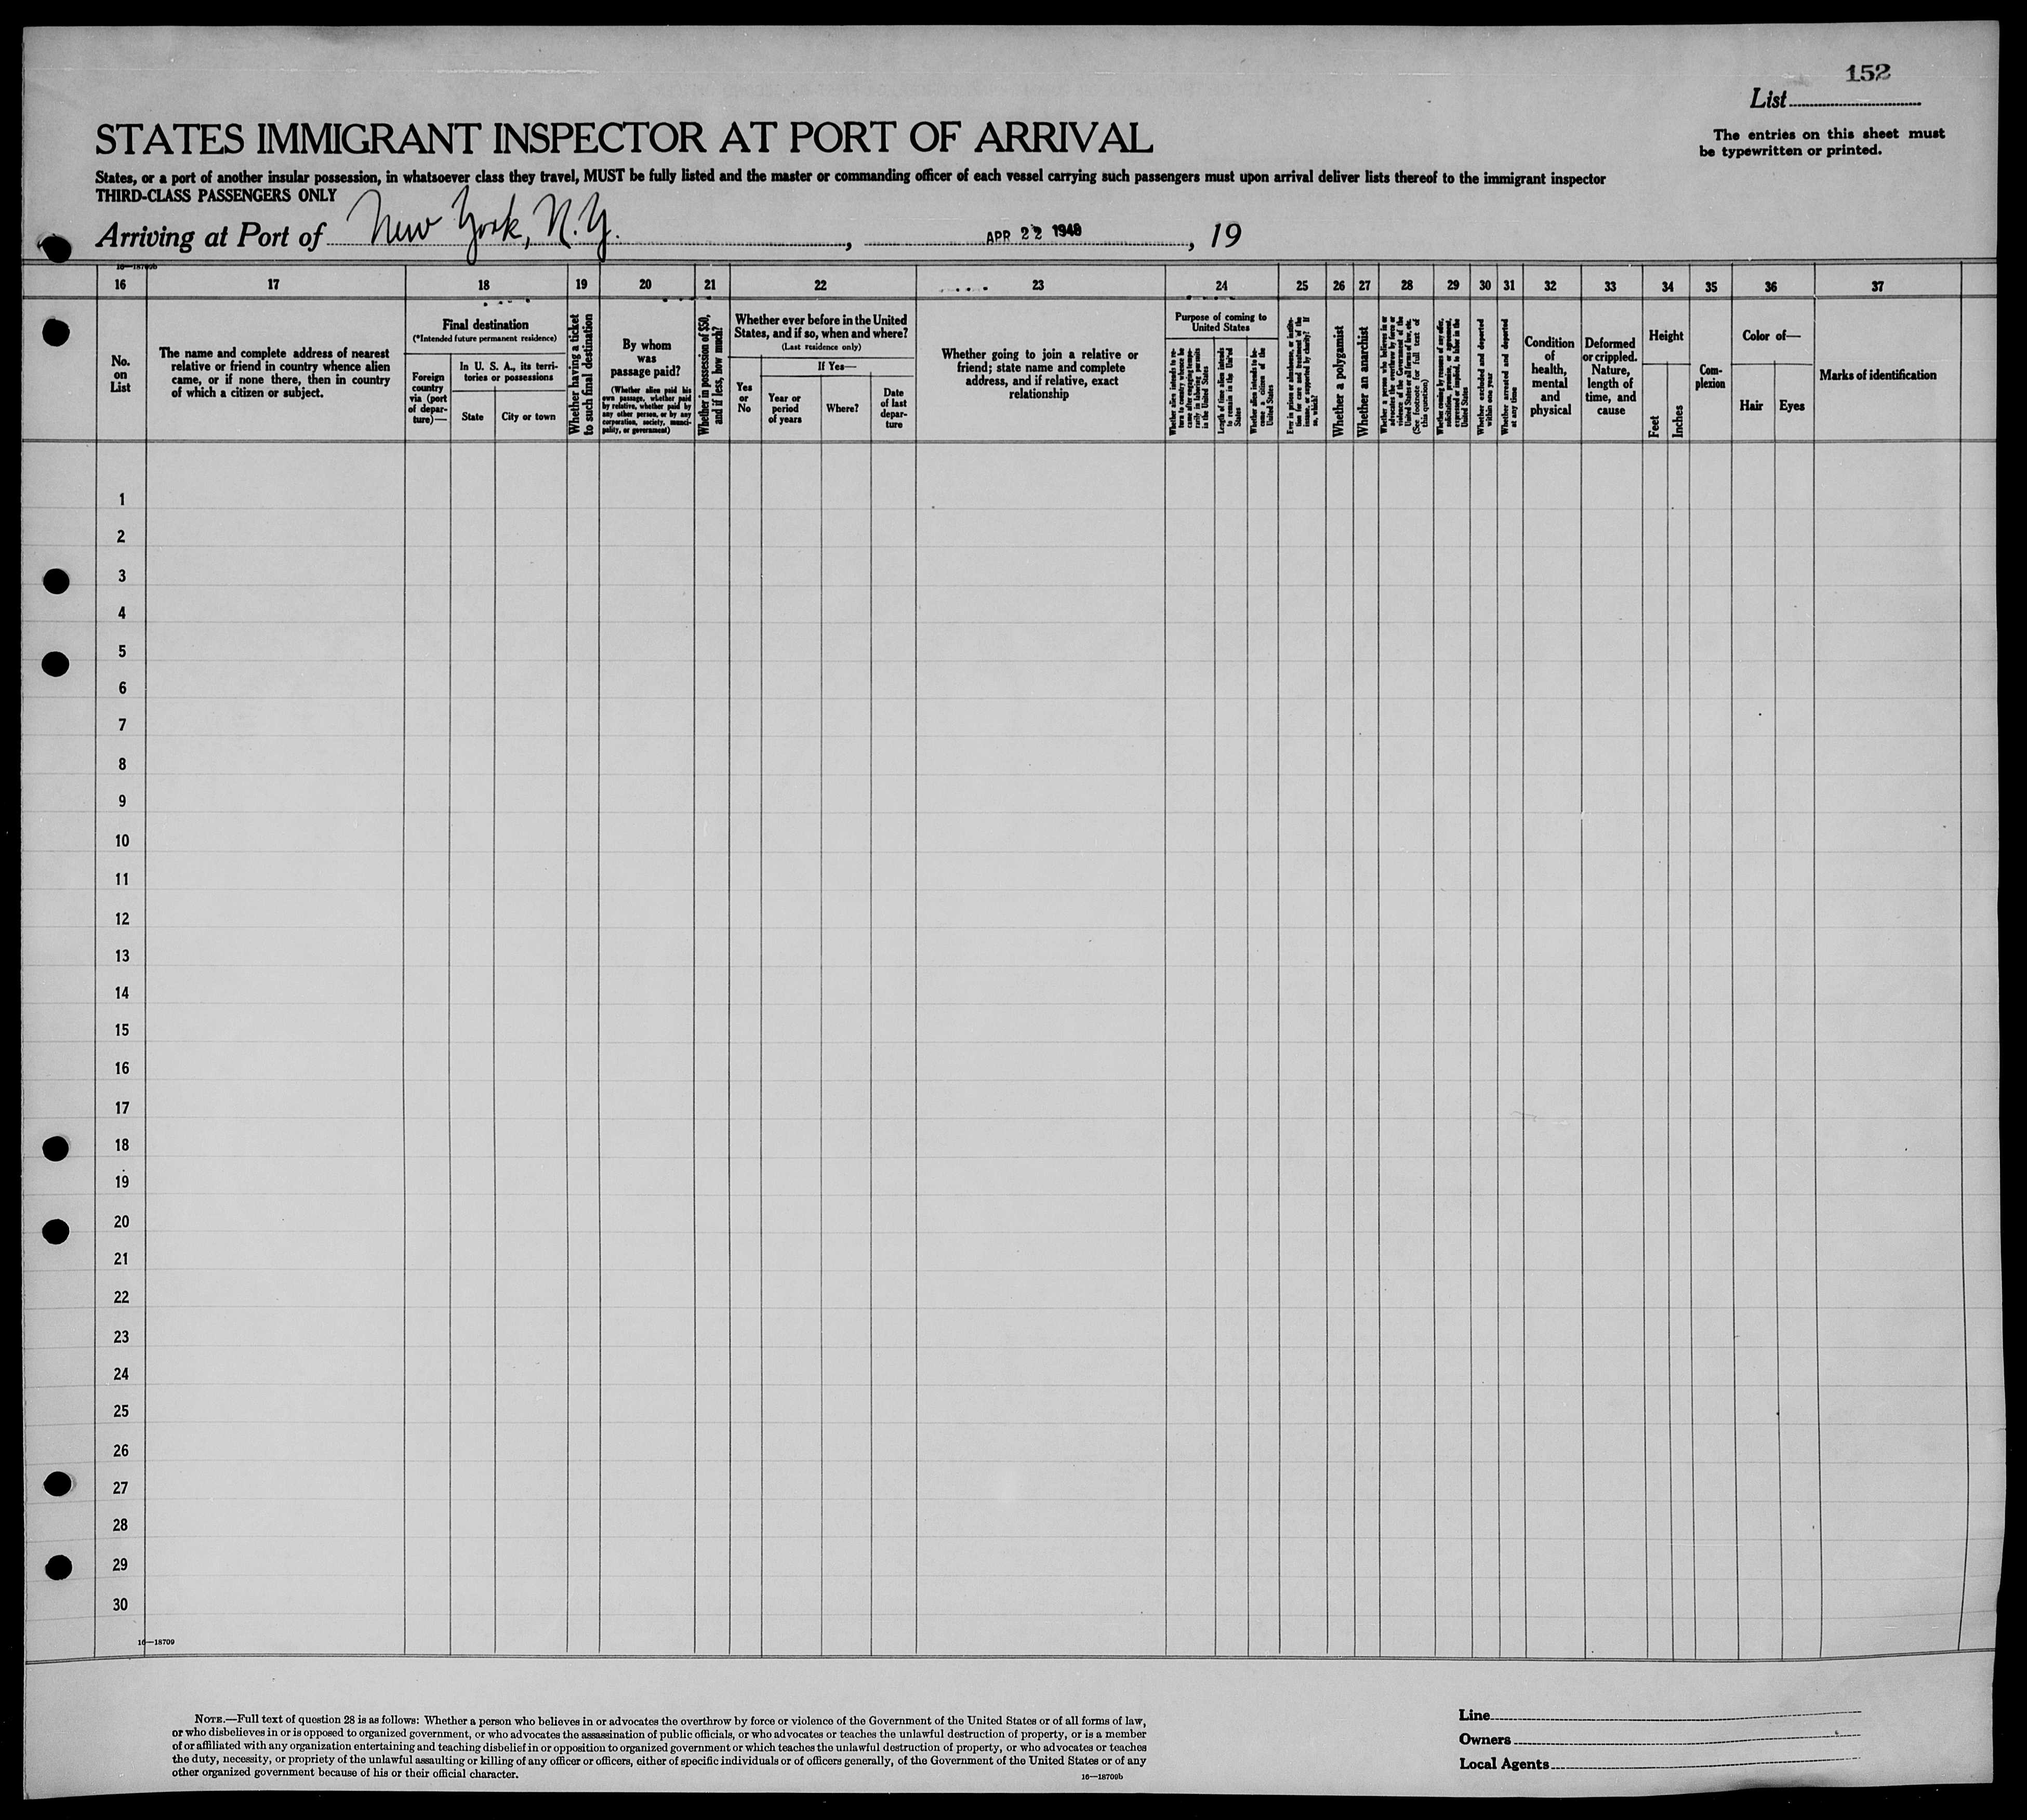 152
List
STATES IMMIGRANT INSPECTOR AT PORT OF ARRIVAL
The entries on this sheet must
be typewritten or printed.
States, or a port of another insular possession, in whatsoever class they travel, MUST be fully listed and the master or commanding officer of each vessel carrying such passengers must upon arrival deliver lists thereof to the immigrant inspector
THIRD-CLASS PASSENGERS ONLY
Arriving at Port of New York, N.Y. , APR 22 1948 , 19
16—18709b
16 17 18 19 20 21 22 23 24 25 26 27 28 29 30 31 32 33 34 35 36 37
No.
on
List
The name and complete address of nearest
relative or friend in country whence alien
came, or if none there, then in country
of which a citizen or subject.
Final destination
(*Intended future permanent residence)
Foreign
country
via (port
of depar-
ture)—
In U. S. A., its terri-
tories or possessions
State
City or town
Whether having a ticket
to such final destination
By whom
was
passage paid?
(Whether alien paid his
own passage, whether paid
by relative, whether paid by
any other person, or by any
corporation, society, munici-
pality, or government)
Whether in possession of $50,
and if less, how much?
Whether ever before in the United
States, and if so, when and where?
(Last residence only)
Yes
or
No
If Yes—
Year or
period
of years
Where?
Date
of last
depar-
ture
Whether going to join a relative or
friend; state name and complete
address, and if relative, exact
relationship
Purpose of coming to
United States
Whether alien intends to re-
turn to country whence he
came after engaging tempo-
rarily in laboring pursuits
in the United States
Length of time alien intends
to remain in the United
States
Whether alien intends to be-
come a citizen of the
United States
Ever in prison or almshouse, or institu-
tion for care and treatment of the
insane, or supported by charity? If
so, which?
Whether a polygamist
Whether an anarchist
Whether a person who believes in or
advocates the overthrow by force or
violence of the Government of the
United States or all forms of law, etc.
(See footnote for full text of
this question)
Whether coming by reason of any offer,
solicitation, promise, or agreement,
expressed or implied, to labor in the
United States
Whether excluded and deported
within one year
Whether arrested and deported
at any time
Condition
of
health,
mental
and
physical
Deformed
or crippled.
Nature,
length of
time, and
cause
Height
Feet
Inches
Com-
plexion
Color of—
Hair
Eyes
Marks of identification
1
2
3
4
5
6
7
8
9
10
11
12
13
14
15
16
17
18
19
20
21
22
23
24
25
26
27
28
29
30
16—18709
NOTE.—Full text of question 28 is as follows: Whether a person who believes in or advocates the overthrow by force or violence of the Government of the United States or of all forms of law,
or who disbelieves in or is opposed to organized government, or who advocates the assassination of public officials, or who advocates or teaches the unlawful destruction of property, or is a member
of or affiliated with any organization entertaining and teaching disbelief in or opposition to organized government or which teaches the unlawful destruction of property, or who advocates or teaches
the duty, necessity, or propriety of the unlawful assaulting or killing of any officer or officers, either of specific individuals or of officers generally, of the Government of the United States or of any
other organized government because of his or their official character.
16—18709b
Line
Owners
Local Agents